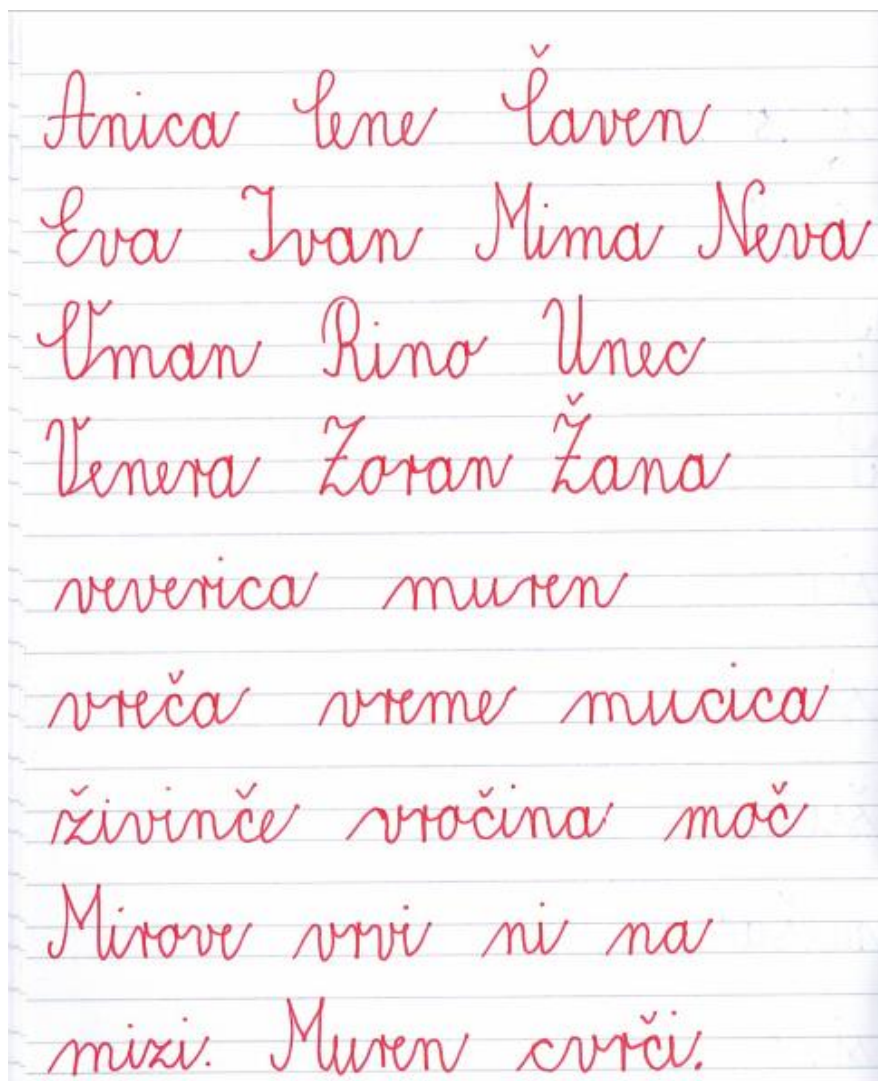 Anica Cene Čaven
Eva Ivan Mima Neva
Oman Rino Unec
Venera Zoran Žana
veverica muren
vreča vreme mucica
živinče vročina moč
Mirove vrvi ni na
mizi. Muren cvrči.